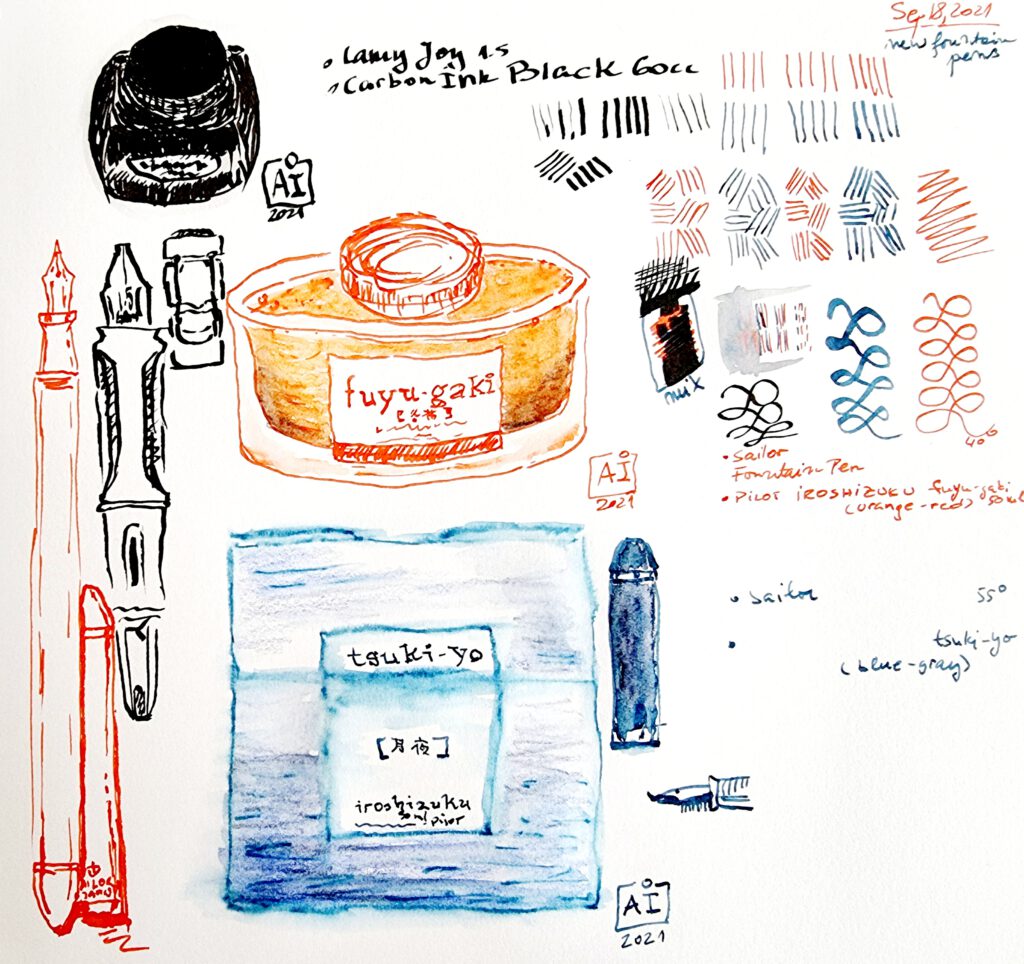 Sep 18, 2021
new fountain
pens
• Lamy Joy 1.5
• Carbon Ink Black 60cc
AI
2021
fuyu-gaki
mix
40°
• Sailor
Fountain Pen
• PILOT IROSHIZUKU fuyu-gaki
(orange-red) 50ml
AI
2021
• Sailor 55°
• tsuki-yo
(blue-gray)
tsuki-yo
[月夜]
iroshizuku
50ml pilot
AI
2021